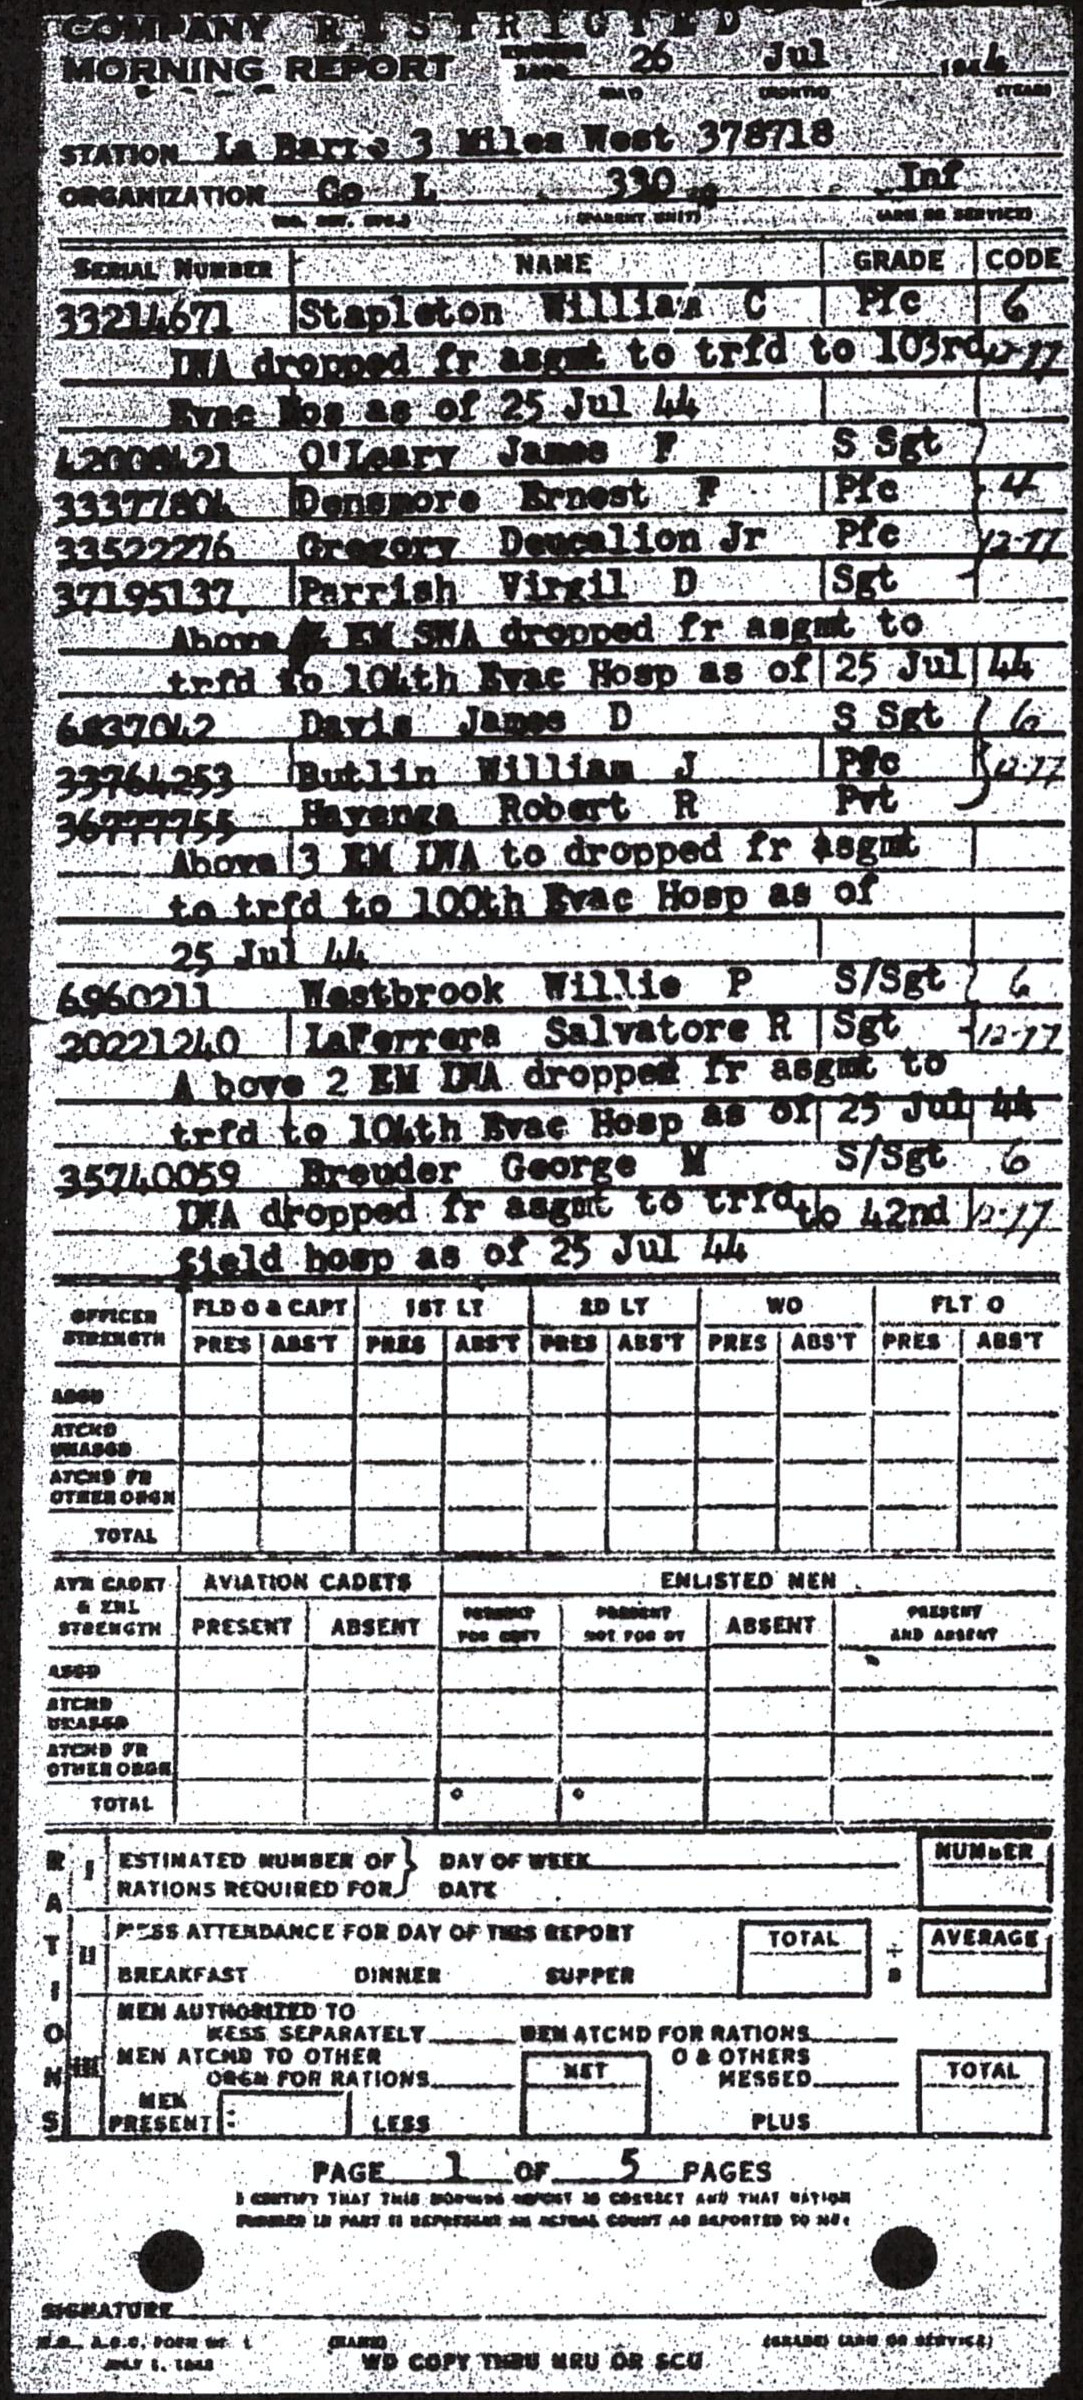 COMPANY RESTRICTED
MORNING REPORT 26 Jul 1944
(DAY) (MONTH) (YEAR)
STATION La Barre 3 Miles West 378718
ORGANIZATION Co L 330 Inf
(PARENT UNIT) (ARM OR SERVICE)
SERIAL NUMBER NAME GRADE CODE
33214671 Stapleton William C Pfc 6
LWA dropped fr asgmt to trfd to 103rd 12-77
Evac Hos as of 25 Jul 44
42008421 O'Leary James F S Sgt
33377804 Densmore Ernest F Pfc 4
33522276 Gregory Deucalion Jr Pfc 12-77
37195137 Parrish Virgil D Sgt
Above 4 EM SWA dropped fr asgmt to
trfd to 104th Evac Hosp as of 25 Jul 44
6837042 Davis James D S Sgt 6
33764253 Butlin William J Pfc 12-77
36777755 Havenga Robert R Pvt
Above 3 EM LWA to dropped fr asgmt
to trfd to 100th Evac Hosp as of
25 Jul 44
6960211 Westbrook Willie P S/Sgt 6
20221240 LaFerrera Salvatore R Sgt 12-77
A bove 2 EM LWA dropped fr asgmt to
trfd to 104th Evac Hosp as of 25 Jul 44
35740059 Breuder George M S/Sgt 6
LWA dropped fr asgmt to trfd to 42nd 12-77
field hosp as of 25 Jul 44
OFFICER STRENGTH FLD O & CAPT 1ST LT 2D LT WO FLT O
PRES ABS'T PRES ABS'T PRES ABS'T PRES ABS'T PRES ABS'T
ASGD
ATCHD UNASGD
ATCHD FR OTHER ORGN
TOTAL
AVN CADET & ENL STRENGTH AVIATION CADETS ENLISTED MEN
PRESENT ABSENT PRESENT FOR DUTY PRESENT NOT FOR DY ABSENT PRESENT AND ABSENT
ASGD
ATCHD UNASGD
ATCHD FR OTHER ORGN
TOTAL
RATIONS
I ESTIMATED NUMBER OF } DAY OF WEEK NUMBER
RATIONS REQUIRED FOR DATE
II MESS ATTENDANCE FOR DAY OF THIS REPORT TOTAL ÷ AVERAGE
BREAKFAST DINNER SUPPER
III MEN AUTHORIZED TO
MESS SEPARATELY MEN ATCHD FOR RATIONS
MEN ATCHD TO OTHER O & OTHERS
ORGN FOR RATIONS NET MESSED TOTAL
MEN PRESENT : LESS PLUS
PAGE 1 OF 5 PAGES
I CERTIFY THAT THIS MORNING REPORT IS CORRECT AND THAT RATION
FIGURES IN PART II REPRESENT AN ACTUAL COUNT AS REPORTED TO ME.
SIGNATURE
W.D., A.G.O. FORM NO. 1 (NAME) (GRADE) (ARM OR SERVICE)
WD COPY THRU MRU OR SCU